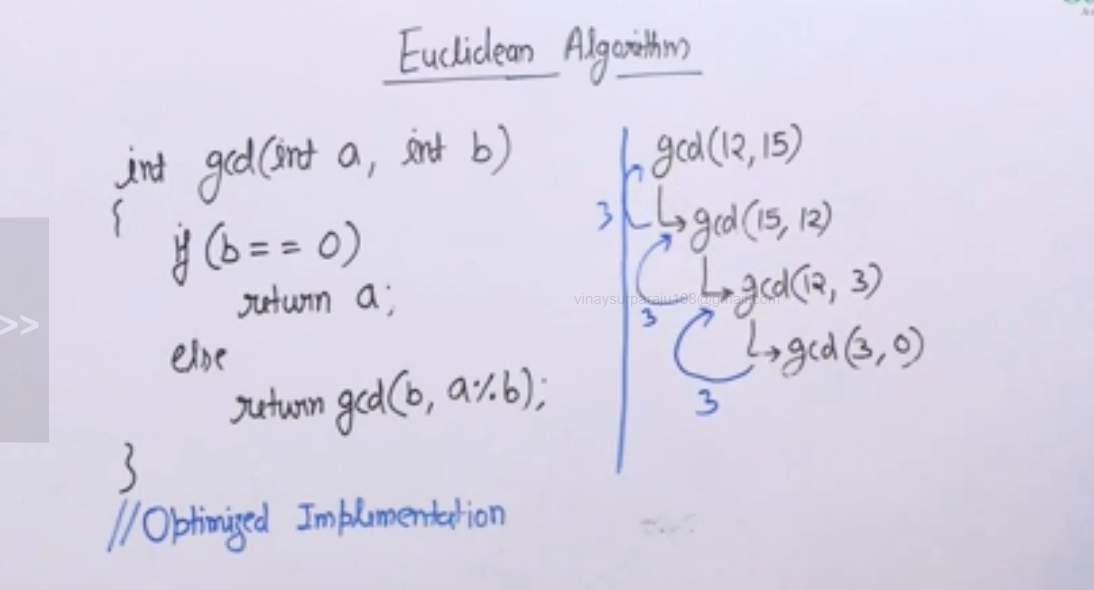 Euclidean Algorithm
int gcd(int a, int b)
{
if (b == 0)
return a;
else
return gcd(b, a%b);
}
//Optimized Implementation
gcd(12,15)
3 ↳gcd(15, 12)
↳gcd(12, 3)
vinaysurparaju198@gmail.com
3
↳gcd(3,0)
3
>>